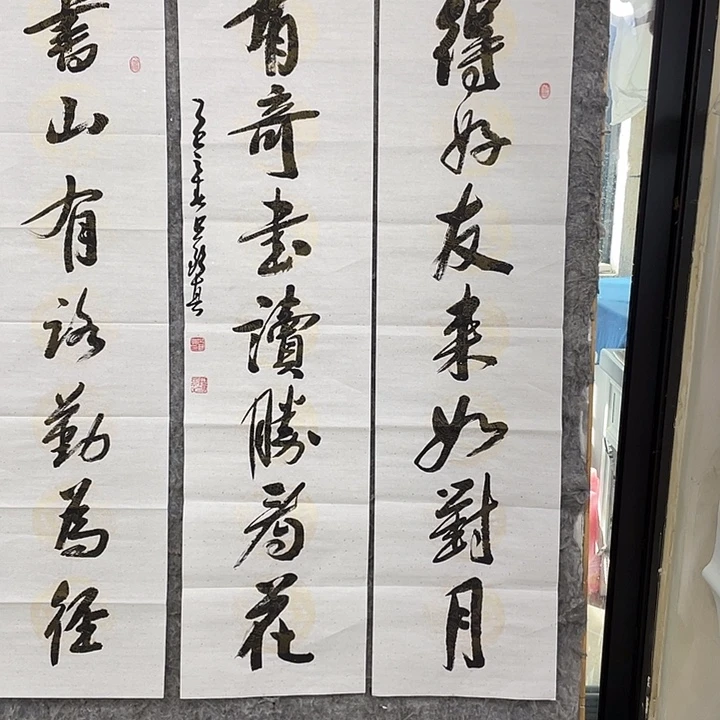 得好友来如對月
有奇書讀勝看花
書山有路勤為徑